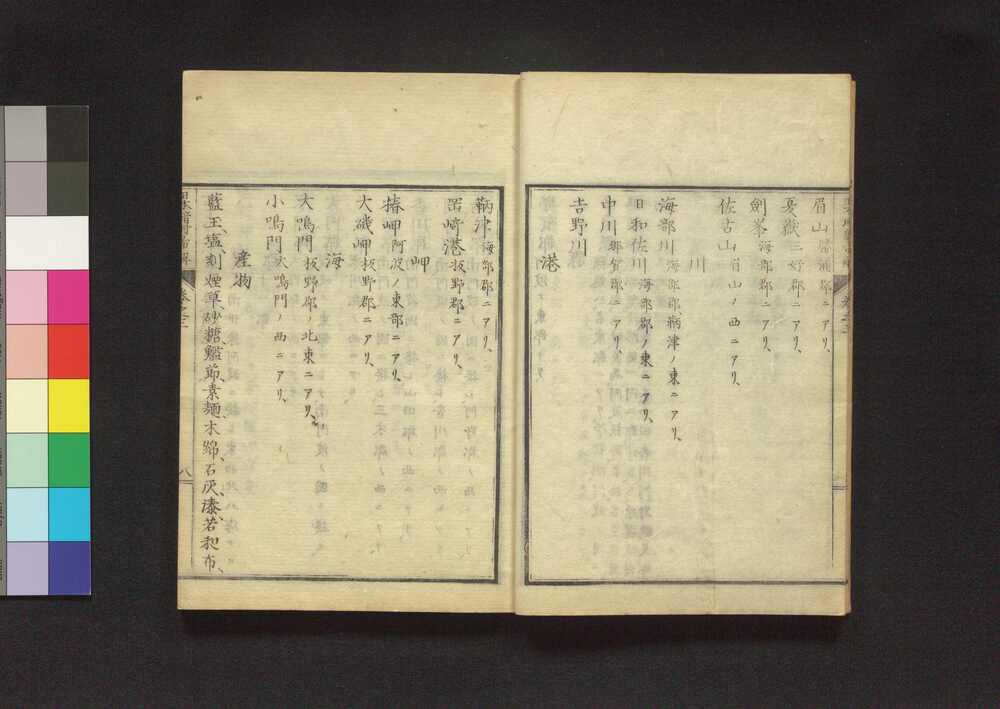 眉山名東郡ニアリ、
三好郡ニアリ、
劍峯海部郡ニアリ、
佐古山眉山ノ西ニアリ、
川
海部川海部郡鞆津ノ東ニアリ、
日和佐川海部郡ノ東ニアリ、
中川那賀郡ニアリ、
吉野川
港
鞆津海部郡ニアリ、
岡崎港板野郡ニアリ、
岬
椿岬阿波ノ東部ニアリ、
大磯岬板野郡ニアリ、
海
大鳴門板野郡ノ北東ニアリ、
小鳴門大鳴門ノ西ニアリ、
産物
藍玉、塩、刻煙草、砂糖、鰹節、素麺、木綿、石灰、漆、若和布、
八